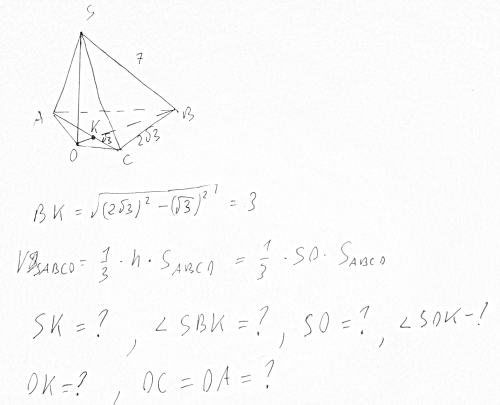 S
7
A
K
B
√3
2√3
O
C
BK = √((2√3)² − (√3)²) = 3
V_SABCO = 1/3 · h · S_ABCO = 1/3 · SO · S_ABCO
SK = ? , ∠SBK = ? , SO = ? , ∠SOK − ?
OK = ? , OC = OA = ?